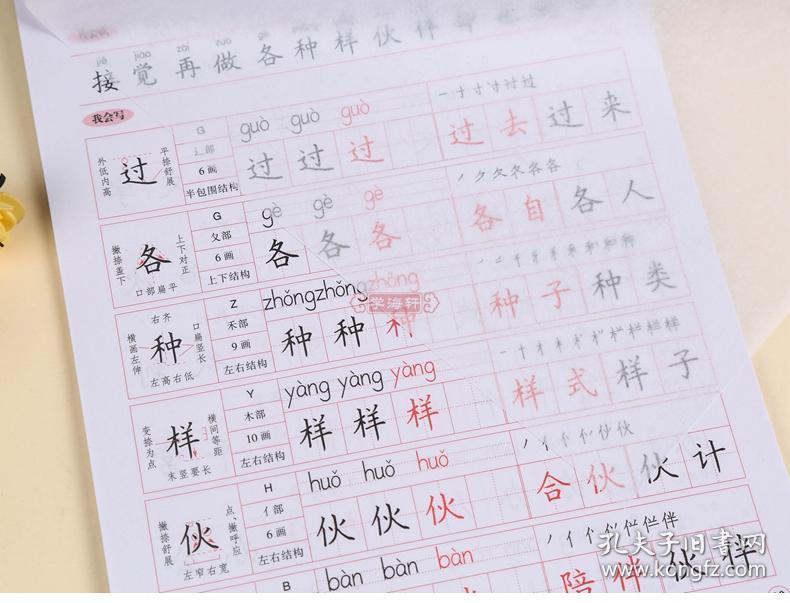 jiē jiào zài zuò gè
接 觉 再 做 各 种 样 伙 伴
我会写
外低内高 过 平捺舒展
G
辶部
6画
半包围结构
guò guò guò
过 过 过
过 去 过 来
撇捺盖下 各 上下对正
口部扁平
G
夂部
6画
上下结构
gè gè gè
各 各 各
各 自 各 人
右齐
横画左伸 种 口扁竖长
左高右低
Z
禾部
9画
左右结构
zhǒng zhǒng zhǒng
种 种 种
种 子 种 类
学海轩
变捺为点 样 横间等距
末竖要长
Y
木部
10画
左右结构
yàng yàng yàng
样 样 样
样 式 样 子
撇捺舒展 伙 点、撇呼应
左窄右宽
H
亻部
6画
左右结构
huǒ huǒ huǒ
伙 伙 伙
合 伙 伙 计
B
bàn bàn bàn
陪 伴 伙 伴
孔夫子旧书网
www.kongfz.com